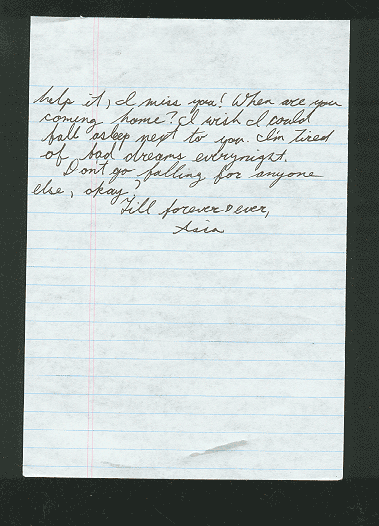 help it, I miss you! When are you
coming home? I wish I could
fall asleep next to you. I'm tired
of bad dreams everynight.
Don't go falling for anyone
else, okay?
Till forever & ever,
Asia